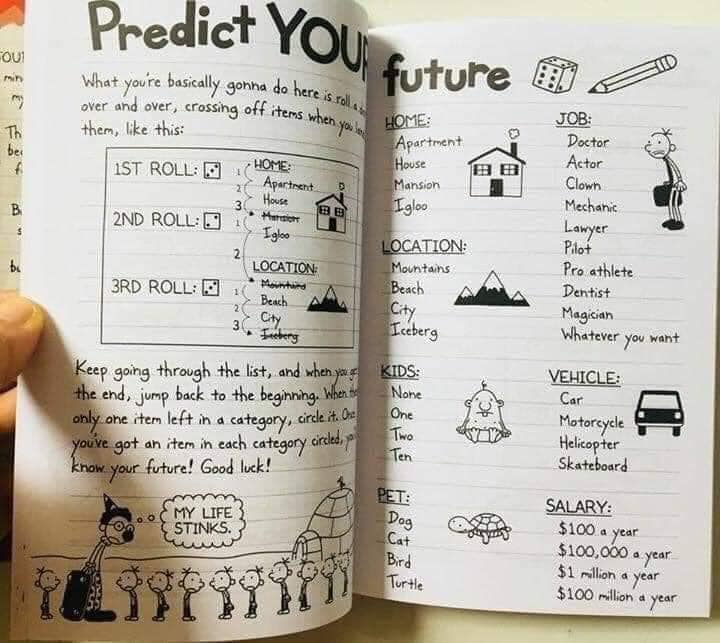 Predict YOUR future
What you're basically gonna do here is roll a
over and over, crossing off items when you
them, like this:
1ST ROLL:
2ND ROLL:
3RD ROLL:
1
2
3
1
2
1
2
3
HOME:
Apartment
House
Mansion
Igloo
LOCATION:
Mountains
Beach
City
Iceberg
Keep going through the list, and when you
the end, jump back to the beginning. When
only one item left in a category, circle it.
you've got an item in each category circled,
know your future! Good luck!
MY LIFE
STINKS.
HOME:
Apartment
House
Mansion
Igloo
LOCATION:
Mountains
Beach
City
Iceberg
KIDS:
None
One
Two
Ten
PET:
Dog
Cat
Bird
Turtle
JOB:
Doctor
Actor
Clown
Mechanic
Lawyer
Pilot
Pro athlete
Dentist
Magician
Whatever you want
VEHICLE:
Car
Motorcycle
Helicopter
Skateboard
SALARY:
$100 a year
$100,000 a year
$1 million a year
$100 million a year